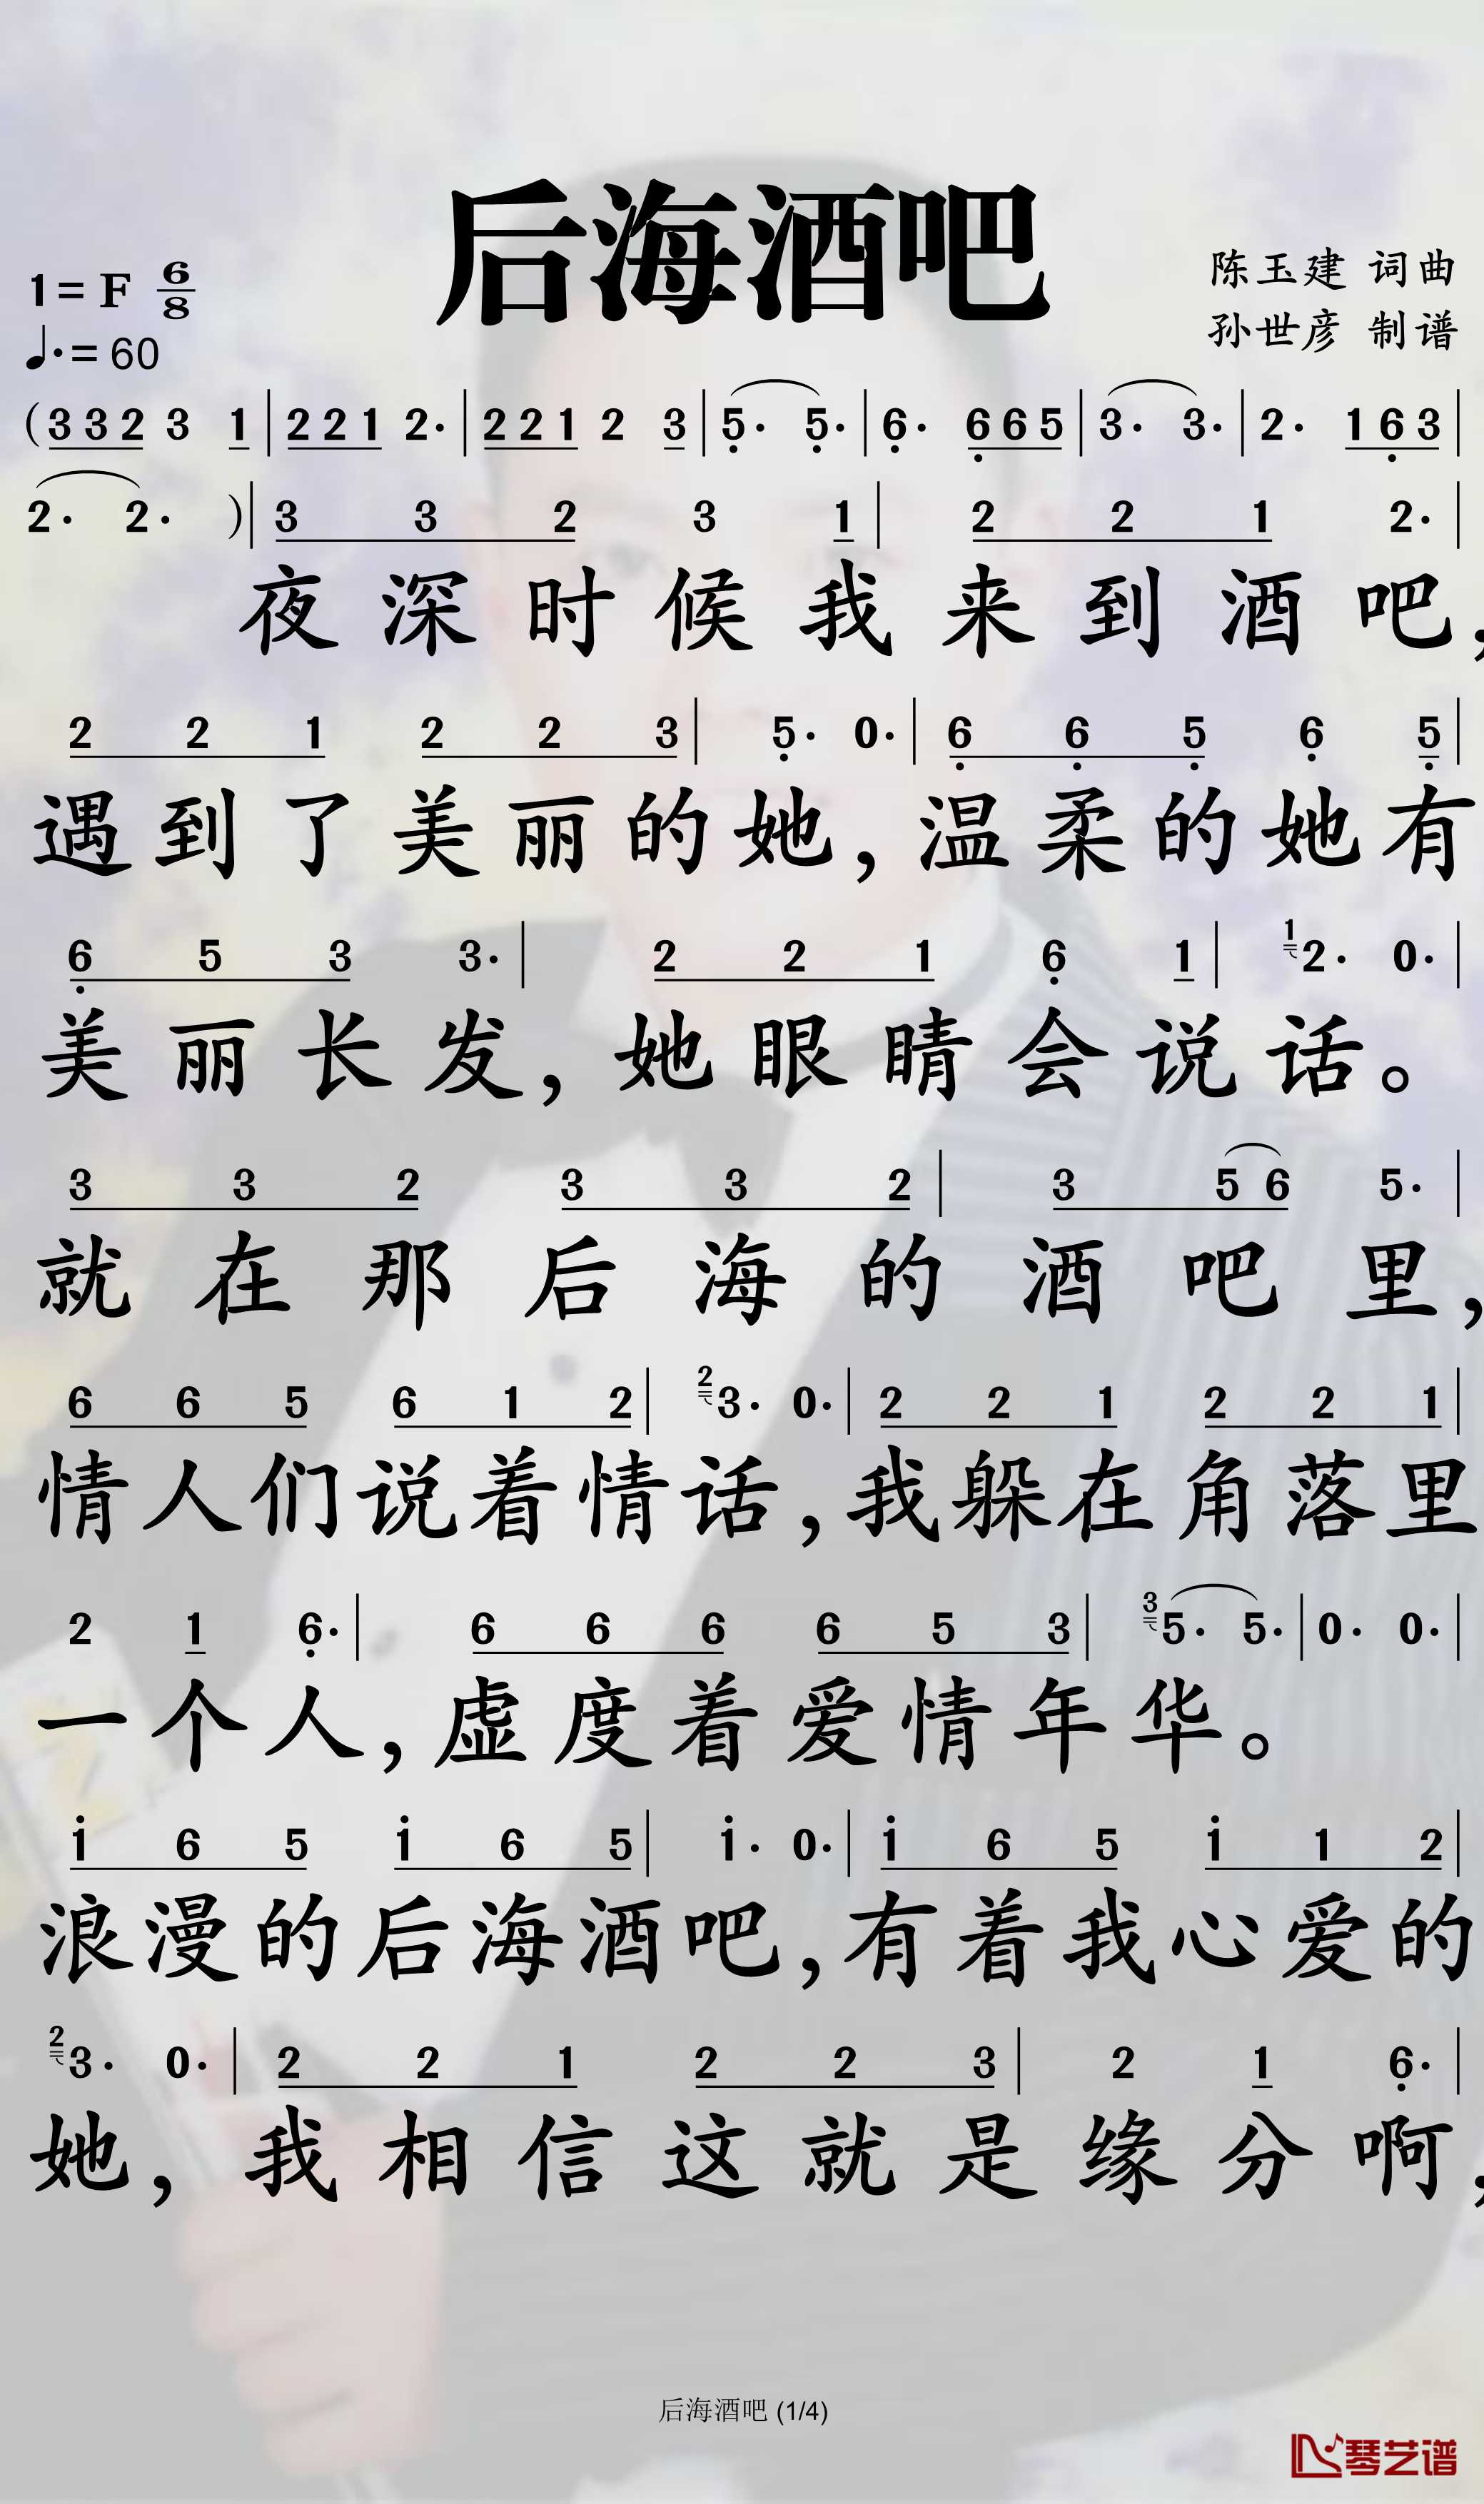 后海酒吧
1= F 6/8
陈玉建 词曲
♩.= 60
孙世彦 制谱
(3 3 2 3 1 | 2 2 1 2· | 2 2 1 2 3 | 5· 5· | 6· 6 6 5 | 3· 3· | 2· 1 6 3 |
2· 2· )| 3 3 2 3 1 | 2 2 1 2· |
夜深时候我来到酒吧,
2 2 1 2 2 3 | 5· 0· | 6 6 5 6 5 |
遇到了美丽的她,温柔的她有
6 5 3 3· | 2 2 1 6 1 | 1 2· 0· |
美丽长发,她眼睛会说话。
3 3 2 3 3 2 | 3 5 6 5· |
就在那后海的酒吧里,
6 6 5 6 1 2 | 2 3· 0· | 2 2 1 2 2 1 |
情人们说着情话,我躲在角落里
2 1 6· | 6 6 6 6 5 3 | 3 5· 5· | 0· 0· |
一个人,虚度着爱情年华。
i 6 5 i 6 5 | i· 0· | i 6 5 i 1 2 |
浪漫的后海酒吧,有着我心爱的
2 3· 0· | 2 2 1 2 2 3 | 2 1 6· |
她,我相信这就是缘分啊,
后海酒吧 (1/4)
琴艺谱